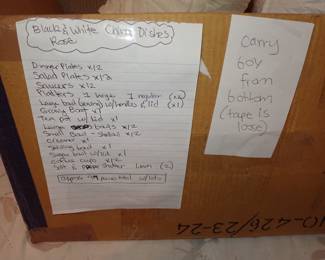 Black & White China Dishes
Rose
Dinner Plates x12
Salad Plates x12
Saucers x12
Platters 1 large 1 regular (x2)
Large bowl (casserole) w/handles & lid (x1)
Gravy Boat x1
Tea pot w/ lid x1
Large bowls x12
Small Bowl - shallow x12
Creamer x1
Serving bowl x1
Sugar bowl w/ lid x1
Coffee cups x12
Salt & pepper shaker (2)
Approx 99 pieces total w/ lids
Carry
box
from
bottom
(tape is
loose)
10-426/23-24